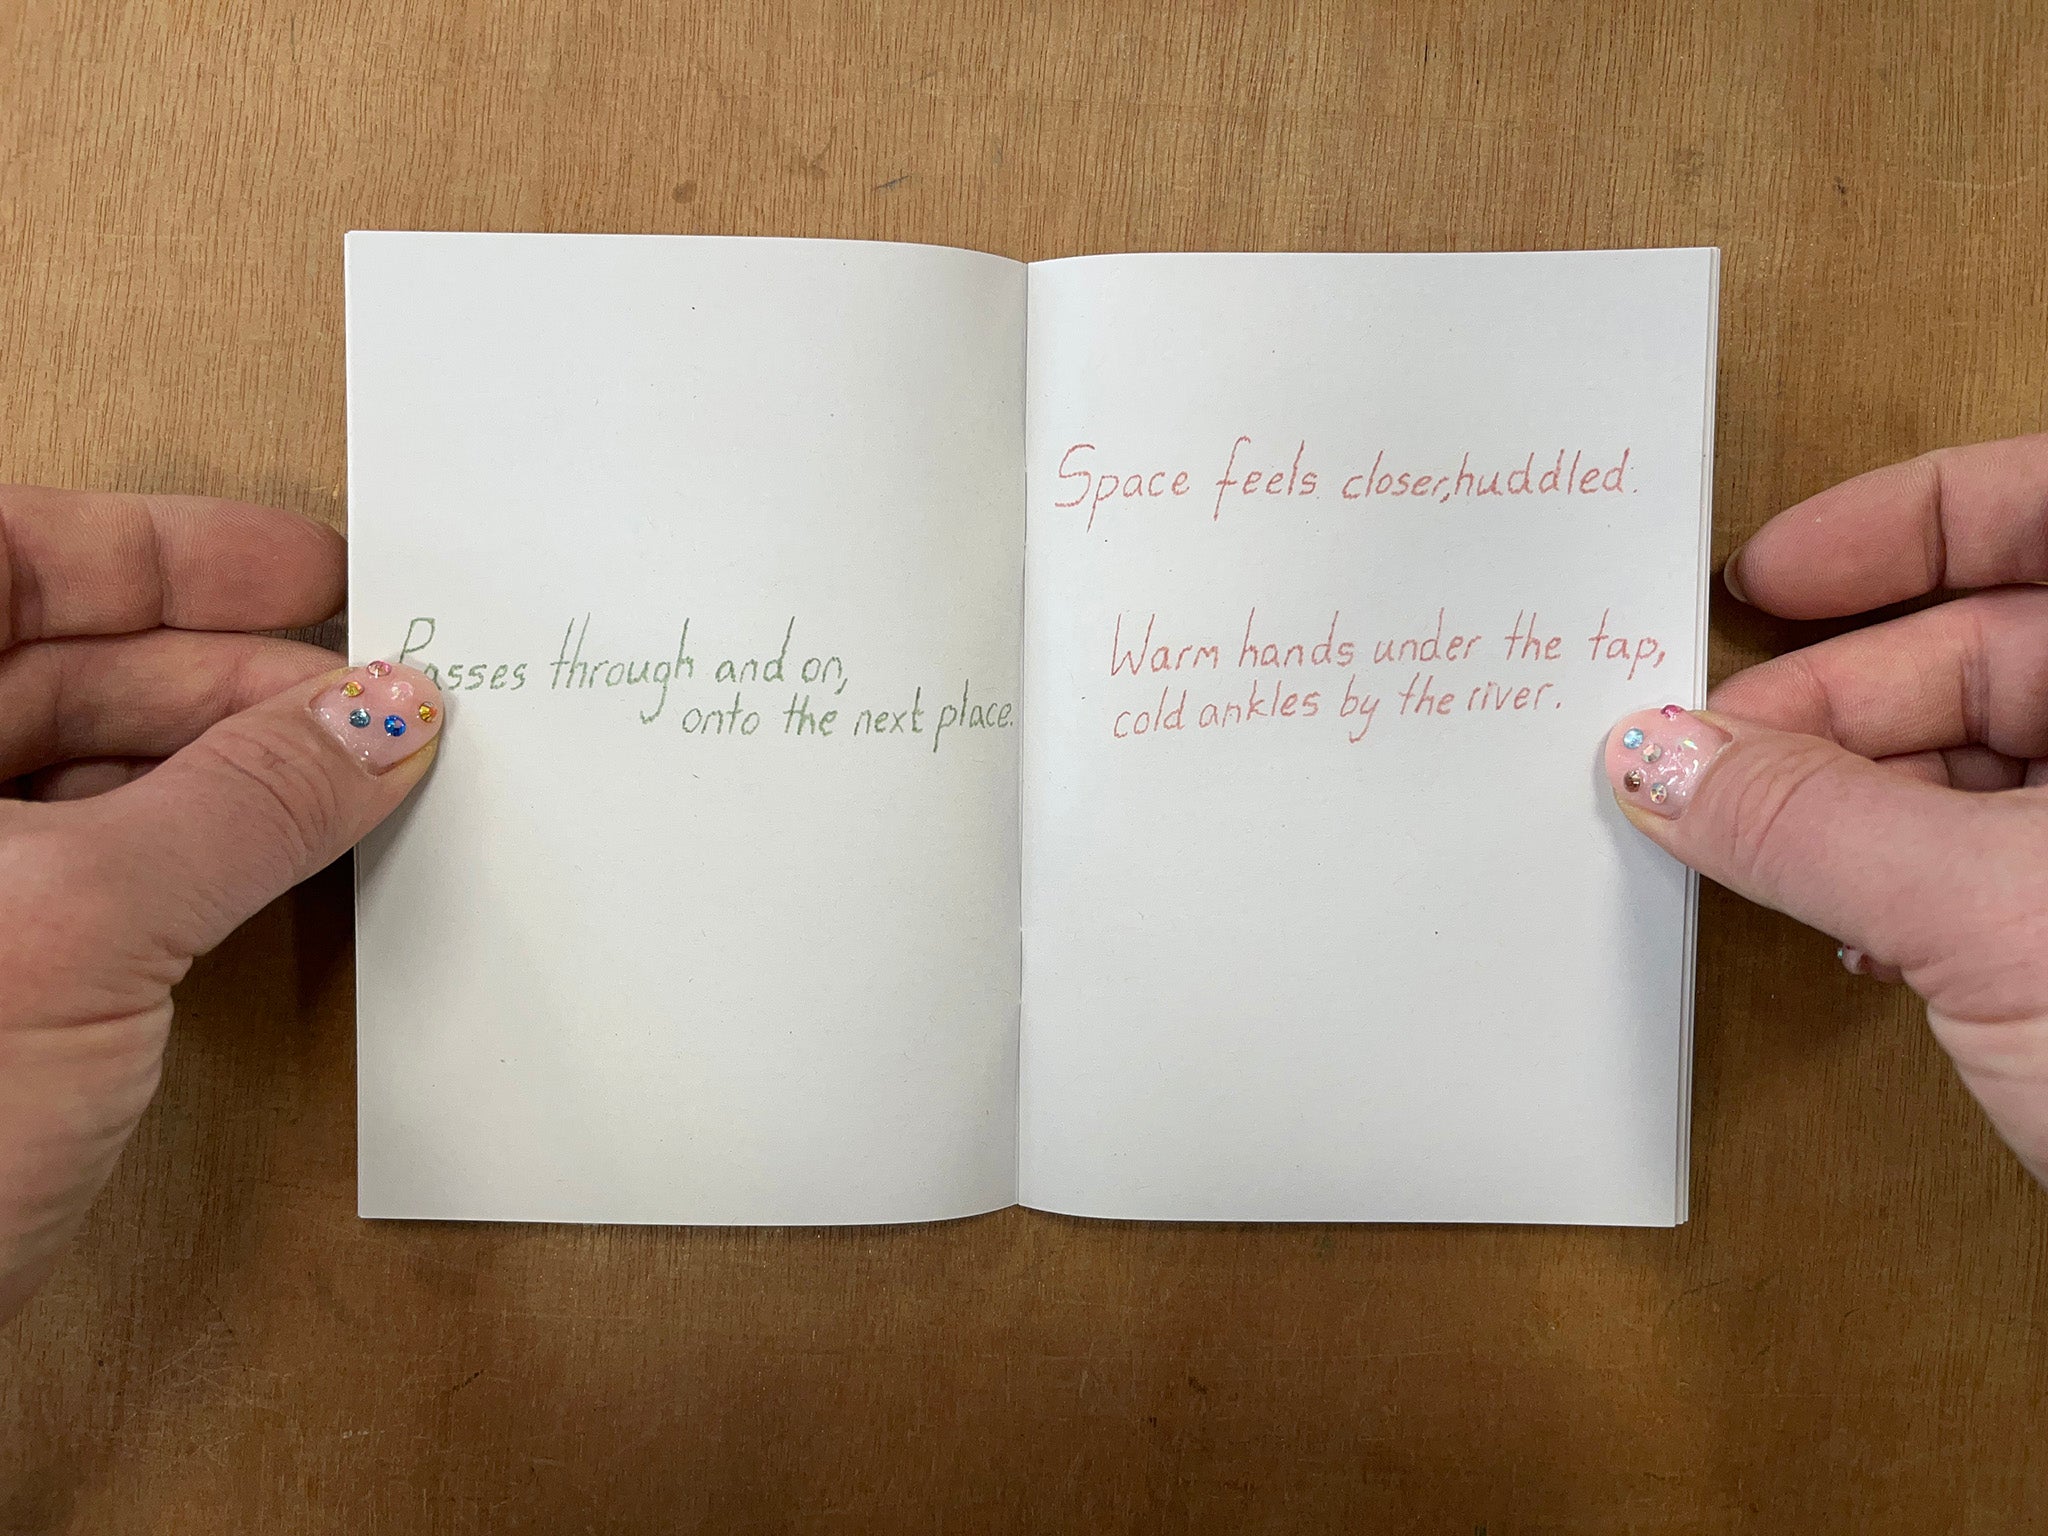 Passes through and on,
onto the next place.
Space feels closer, huddled.
Warm hands under the tap,
cold ankles by the river.